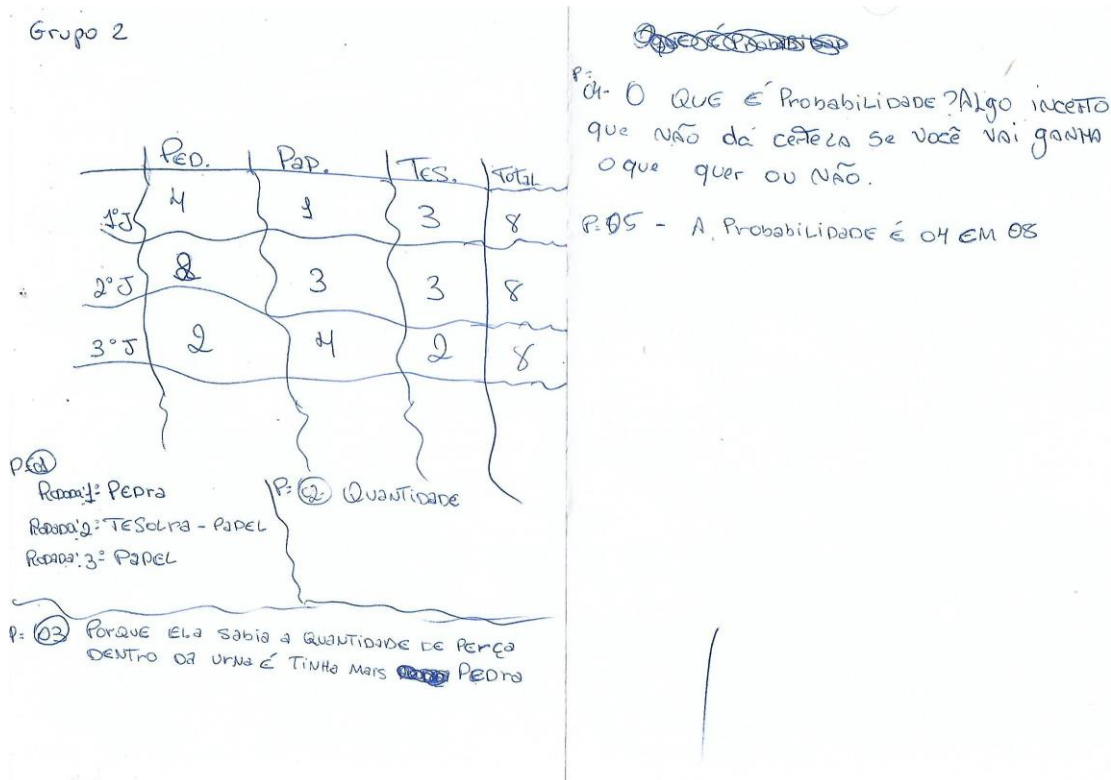 Grupo 2
PED. PAP. TES. TOTAL
1º J 4 1 3 8
2º J 2 3 3 8
3º J 2 4 2 8
P: 01
Rodada: 1: PEDra
Rodada: 2: TESOUra - PAPEL
Rodada: 3: PAPEL
P: 02 QUANTIDADE
P: 03 PORQUE ELa sabia a QUANTIDADE DE PErça
DENTrO Da UrNa É TINHa MAIS PEDra
P: 04- O QUE É ProbabiliDADE? ALgo incerto
que NÃO dá certeza se você vai ganha
o que quer ou NÃO.
P: 05 - A ProbabiliDaDE É 04 EM 08